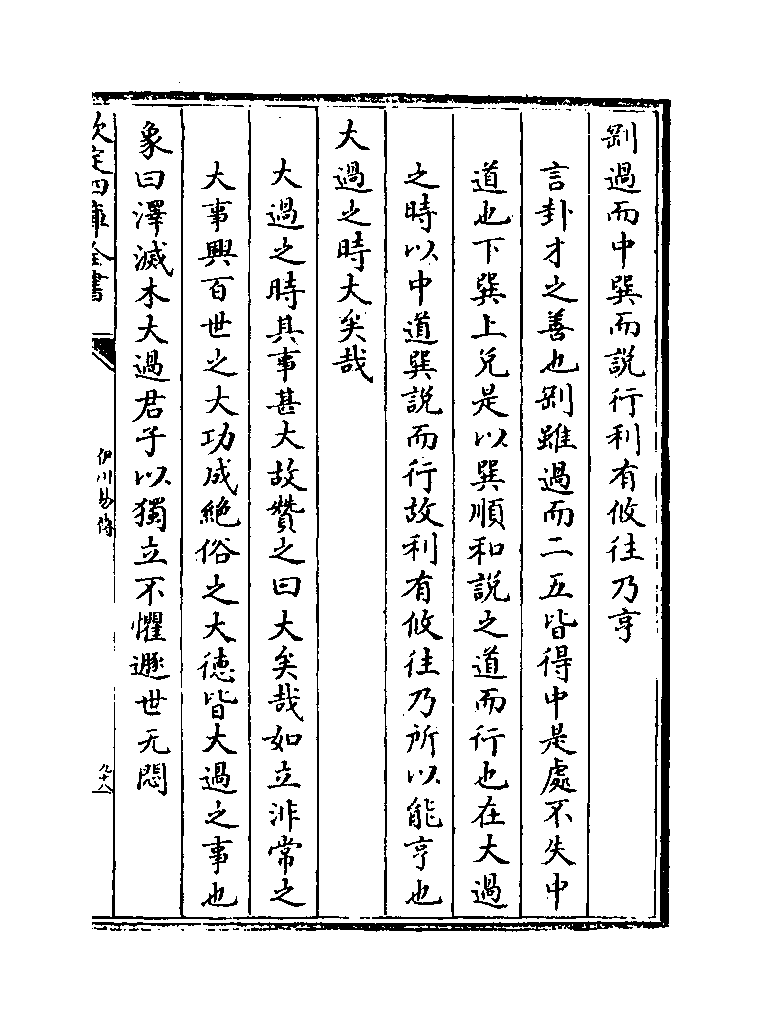 剛過而中巽而說行利有攸往乃亨
言卦才之善也剛雖過而二五皆得中是處不失中
道也下巽上兌是以巽順和說之道而行也在大過
之時以中道巽說而行故利有攸往乃所以能亨也
大過之時大矣哉
大過之時其事甚大故贊之曰大矣哉如立非常之
大事興百世之大功成絶俗之大德皆大過之事也
象曰澤滅木大過君子以獨立不懼遯世无悶
欽定四庫全書
伊川易傳
九十八